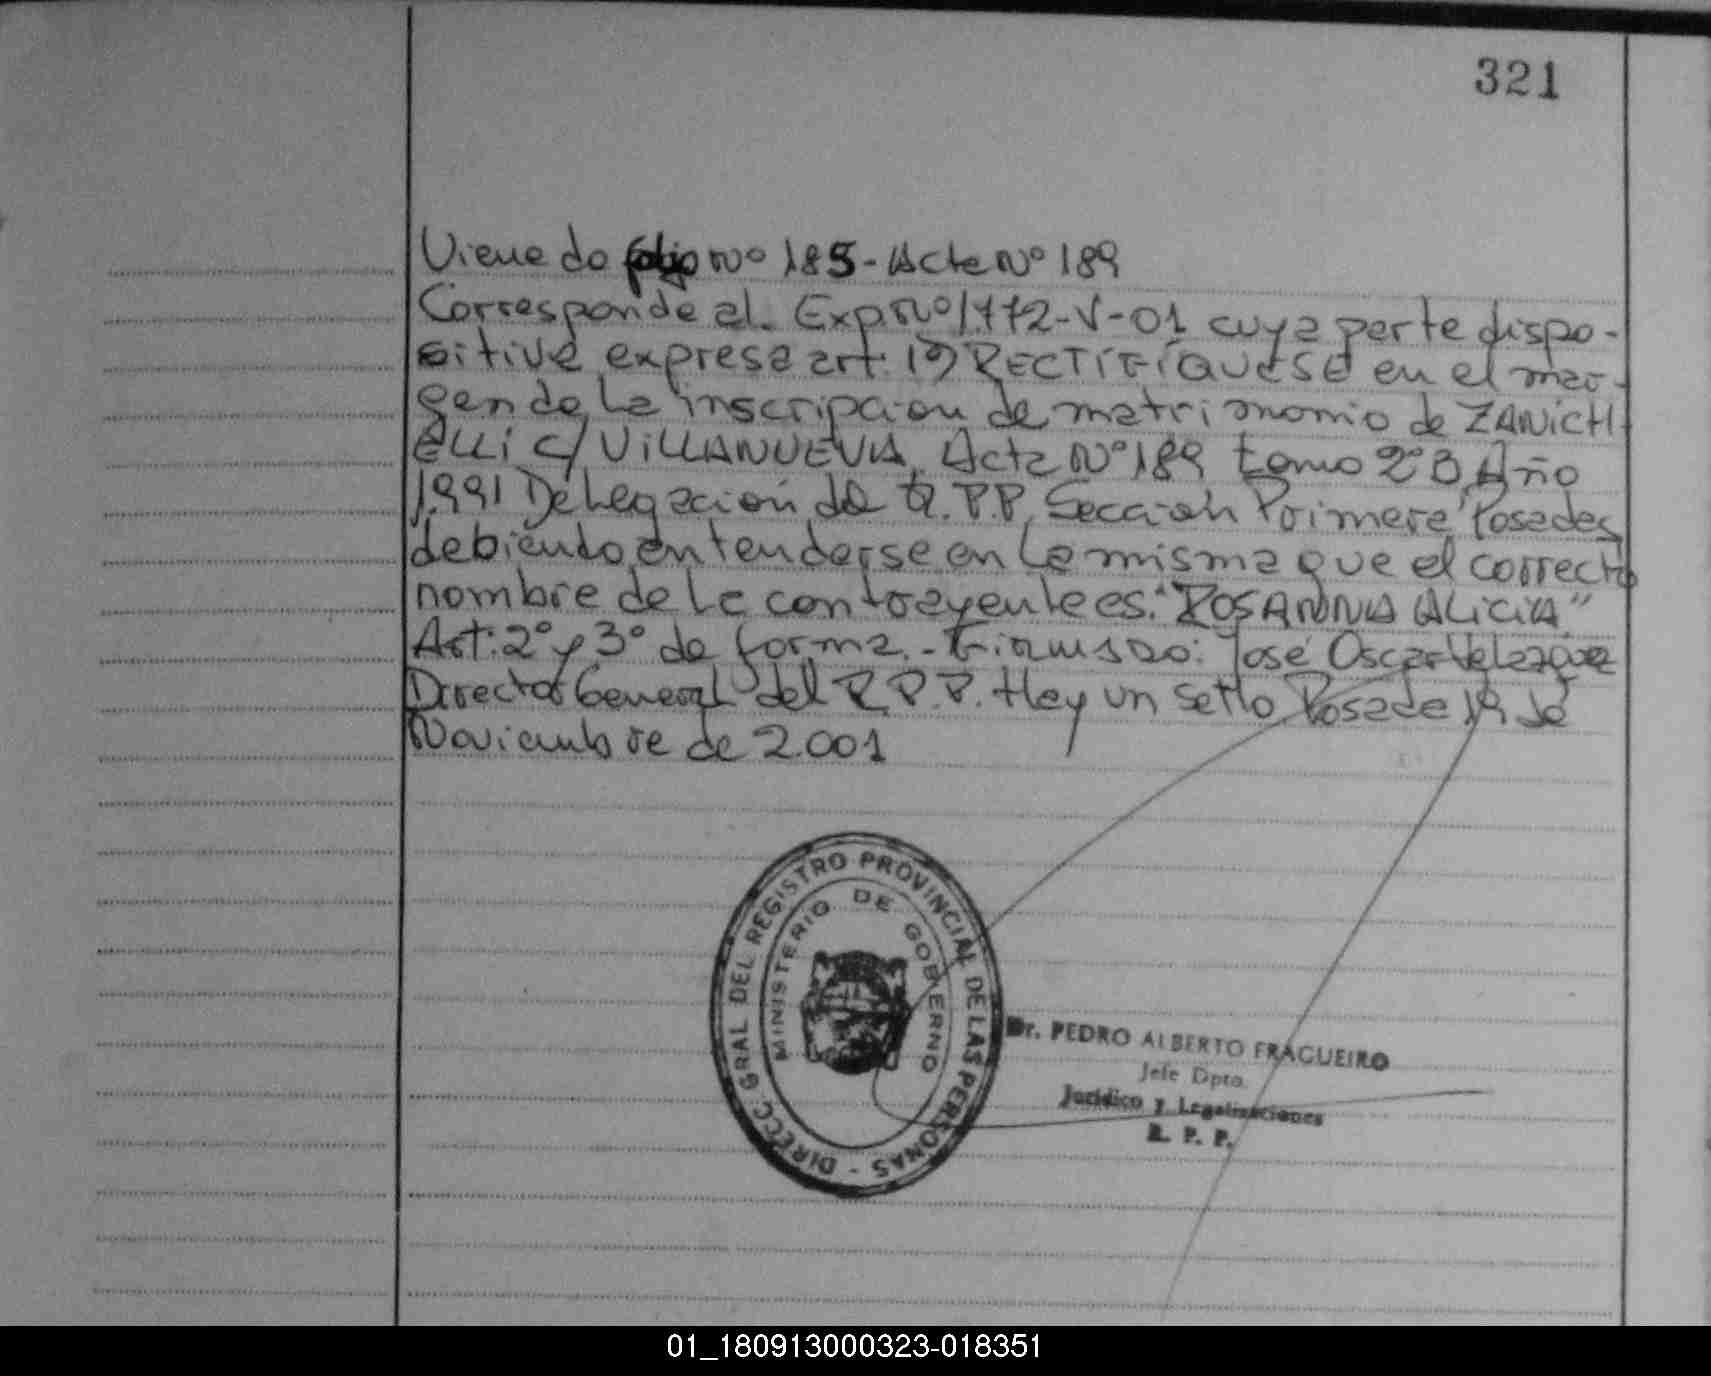 321
Viene de folio Nº 185 - Acta Nº 189
Corresponde al. Exp. Nº 1.772-V-01 cuya parte dispo-
sitiva expresa art. 1º) RECTIFÍQUESE en el mar-
gen de la inscripcion de matrimonio de ZANICH-
ELLI c/ VILLANUEVA, Acta Nº 189 tomo 2º B, Año
1.991 Delegación del R.P.P, Sección Primera, Posadas
debiendo entenderse en la misma que el correcto
nombre de la contrayente es: "ROSANNA ALICIA"
Art: 2º y 3º de forma.- Firmado: José Oscar Velazquez
Director General del R.P.P. Hay un sello Posadas 19 de
Noviembre de 2.001
DIRECC. GRAL DEL REGISTRO PROVINCIAL DE LAS PERSONAS -
MINISTERIO DE GOBIERNO
Dr. PEDRO ALBERTO FRAGUEIRO
Jefe Dpto.
Jurídico y Legalizaciones
R. P. P.
01_180913000323-018351